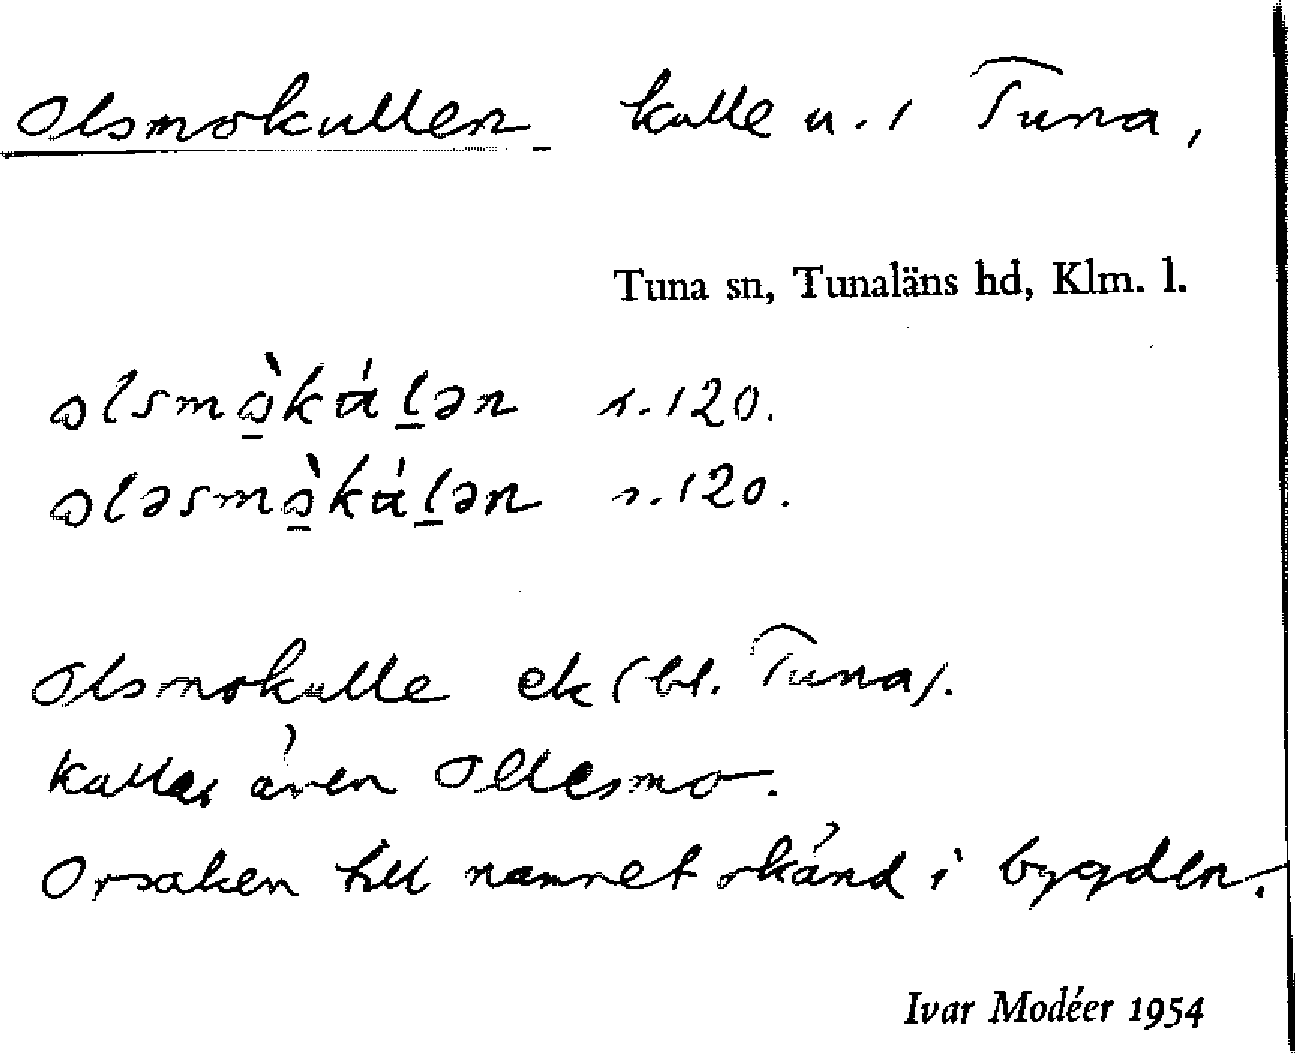 Olsmokullen kulle u. / Tuna,
Tuna sn, Tunaläns hd, Klm. l.
s. 120.
s. 120.
Olsmokulle ek (bl. Tuna).
Kallas även Ollesmo.
Orsaken till namnet okänd i bygden.
Ivar Modéer 1954